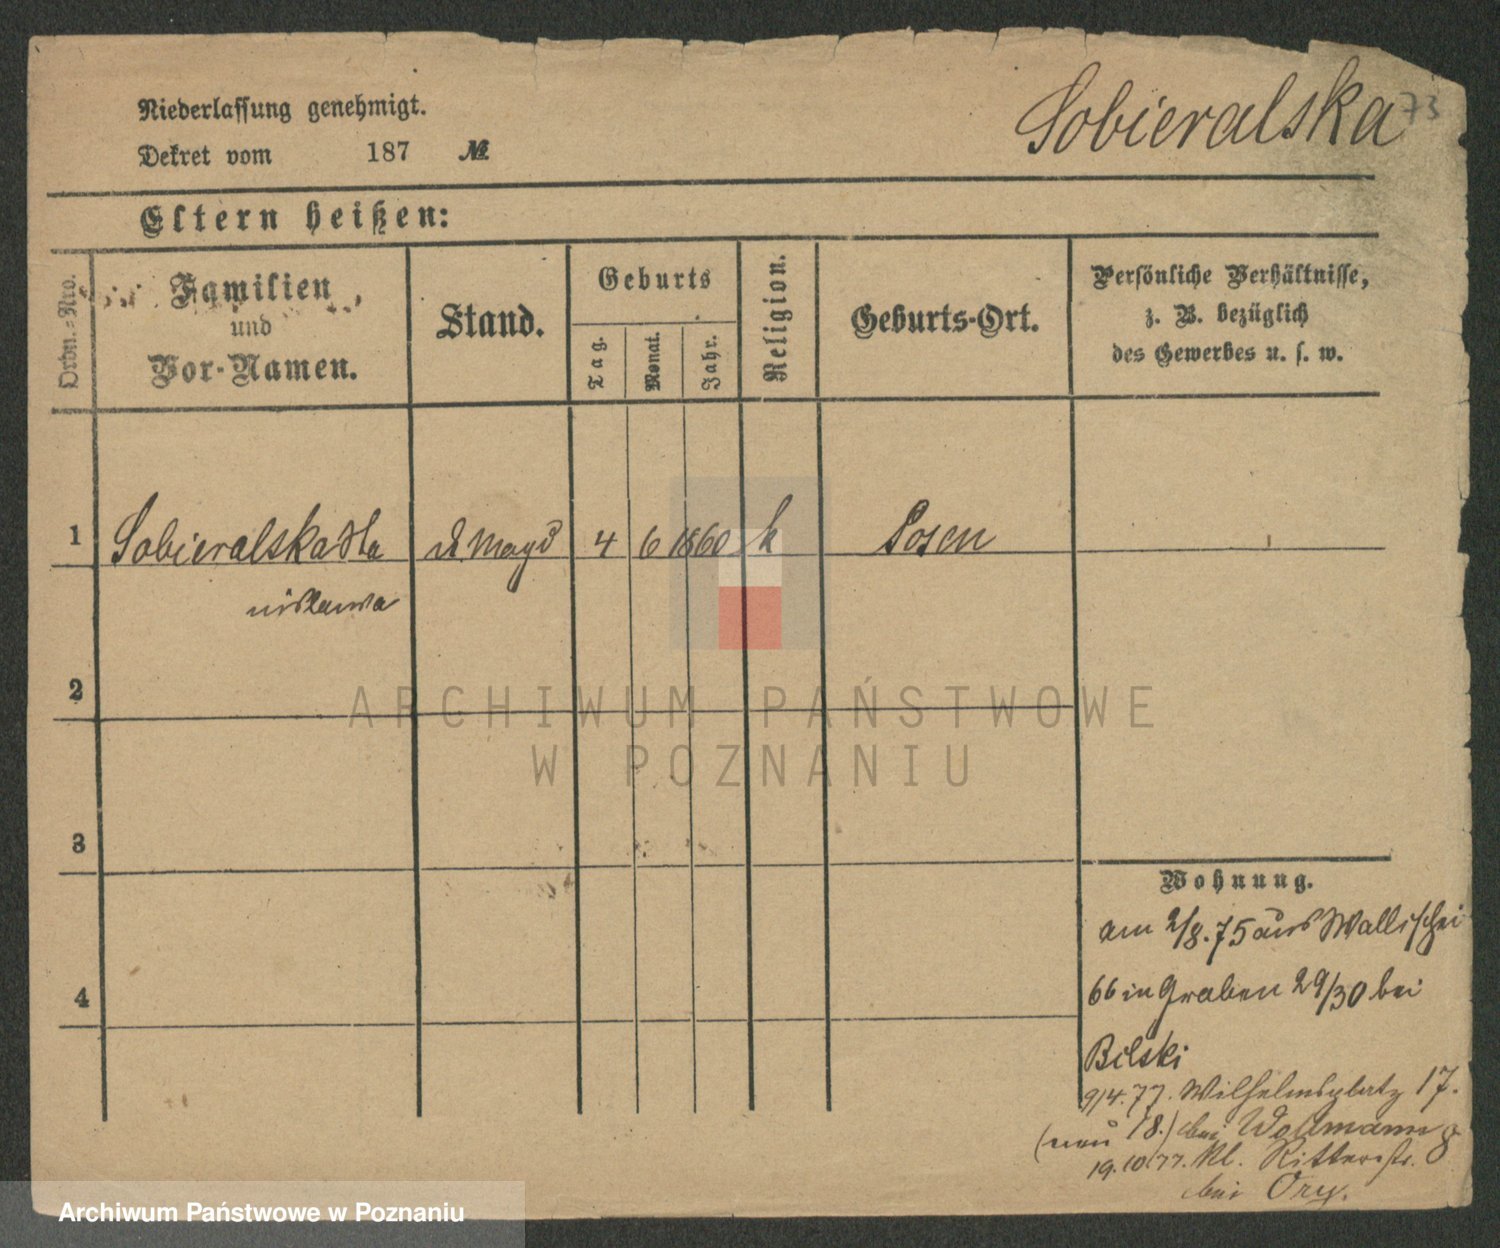 Sobieralska
73
Niederlassung genehmigt.
Dekret vom 187 №
Eltern heißen:
Ordn.-Nro.
Familien
und
Vor-Namen.
Stand.
Geburts
Tag.
Monat.
Jahr.
Religion.
Geburts-Ort.
Persönliche Verhältnisse,
z. B. bezüglich
des Gewerbes u. s. w.
1 Sobieralska Sta 4 6 1860 k Posen
nislawa
2
3
4
Wohnung.
am 2/8.75 aus Wallischei
66 in Graben 29/30 bei
Bilski
9/4.77. Wilhelmsplatz 17.
(neu 18.) bei Wollmann
19.10.77. Kl. Ritterstr. 8
bei Ory.
ARCHIWUM PAŃSTWOWE
W POZNANIU
Archiwum Państwowe w Poznaniu